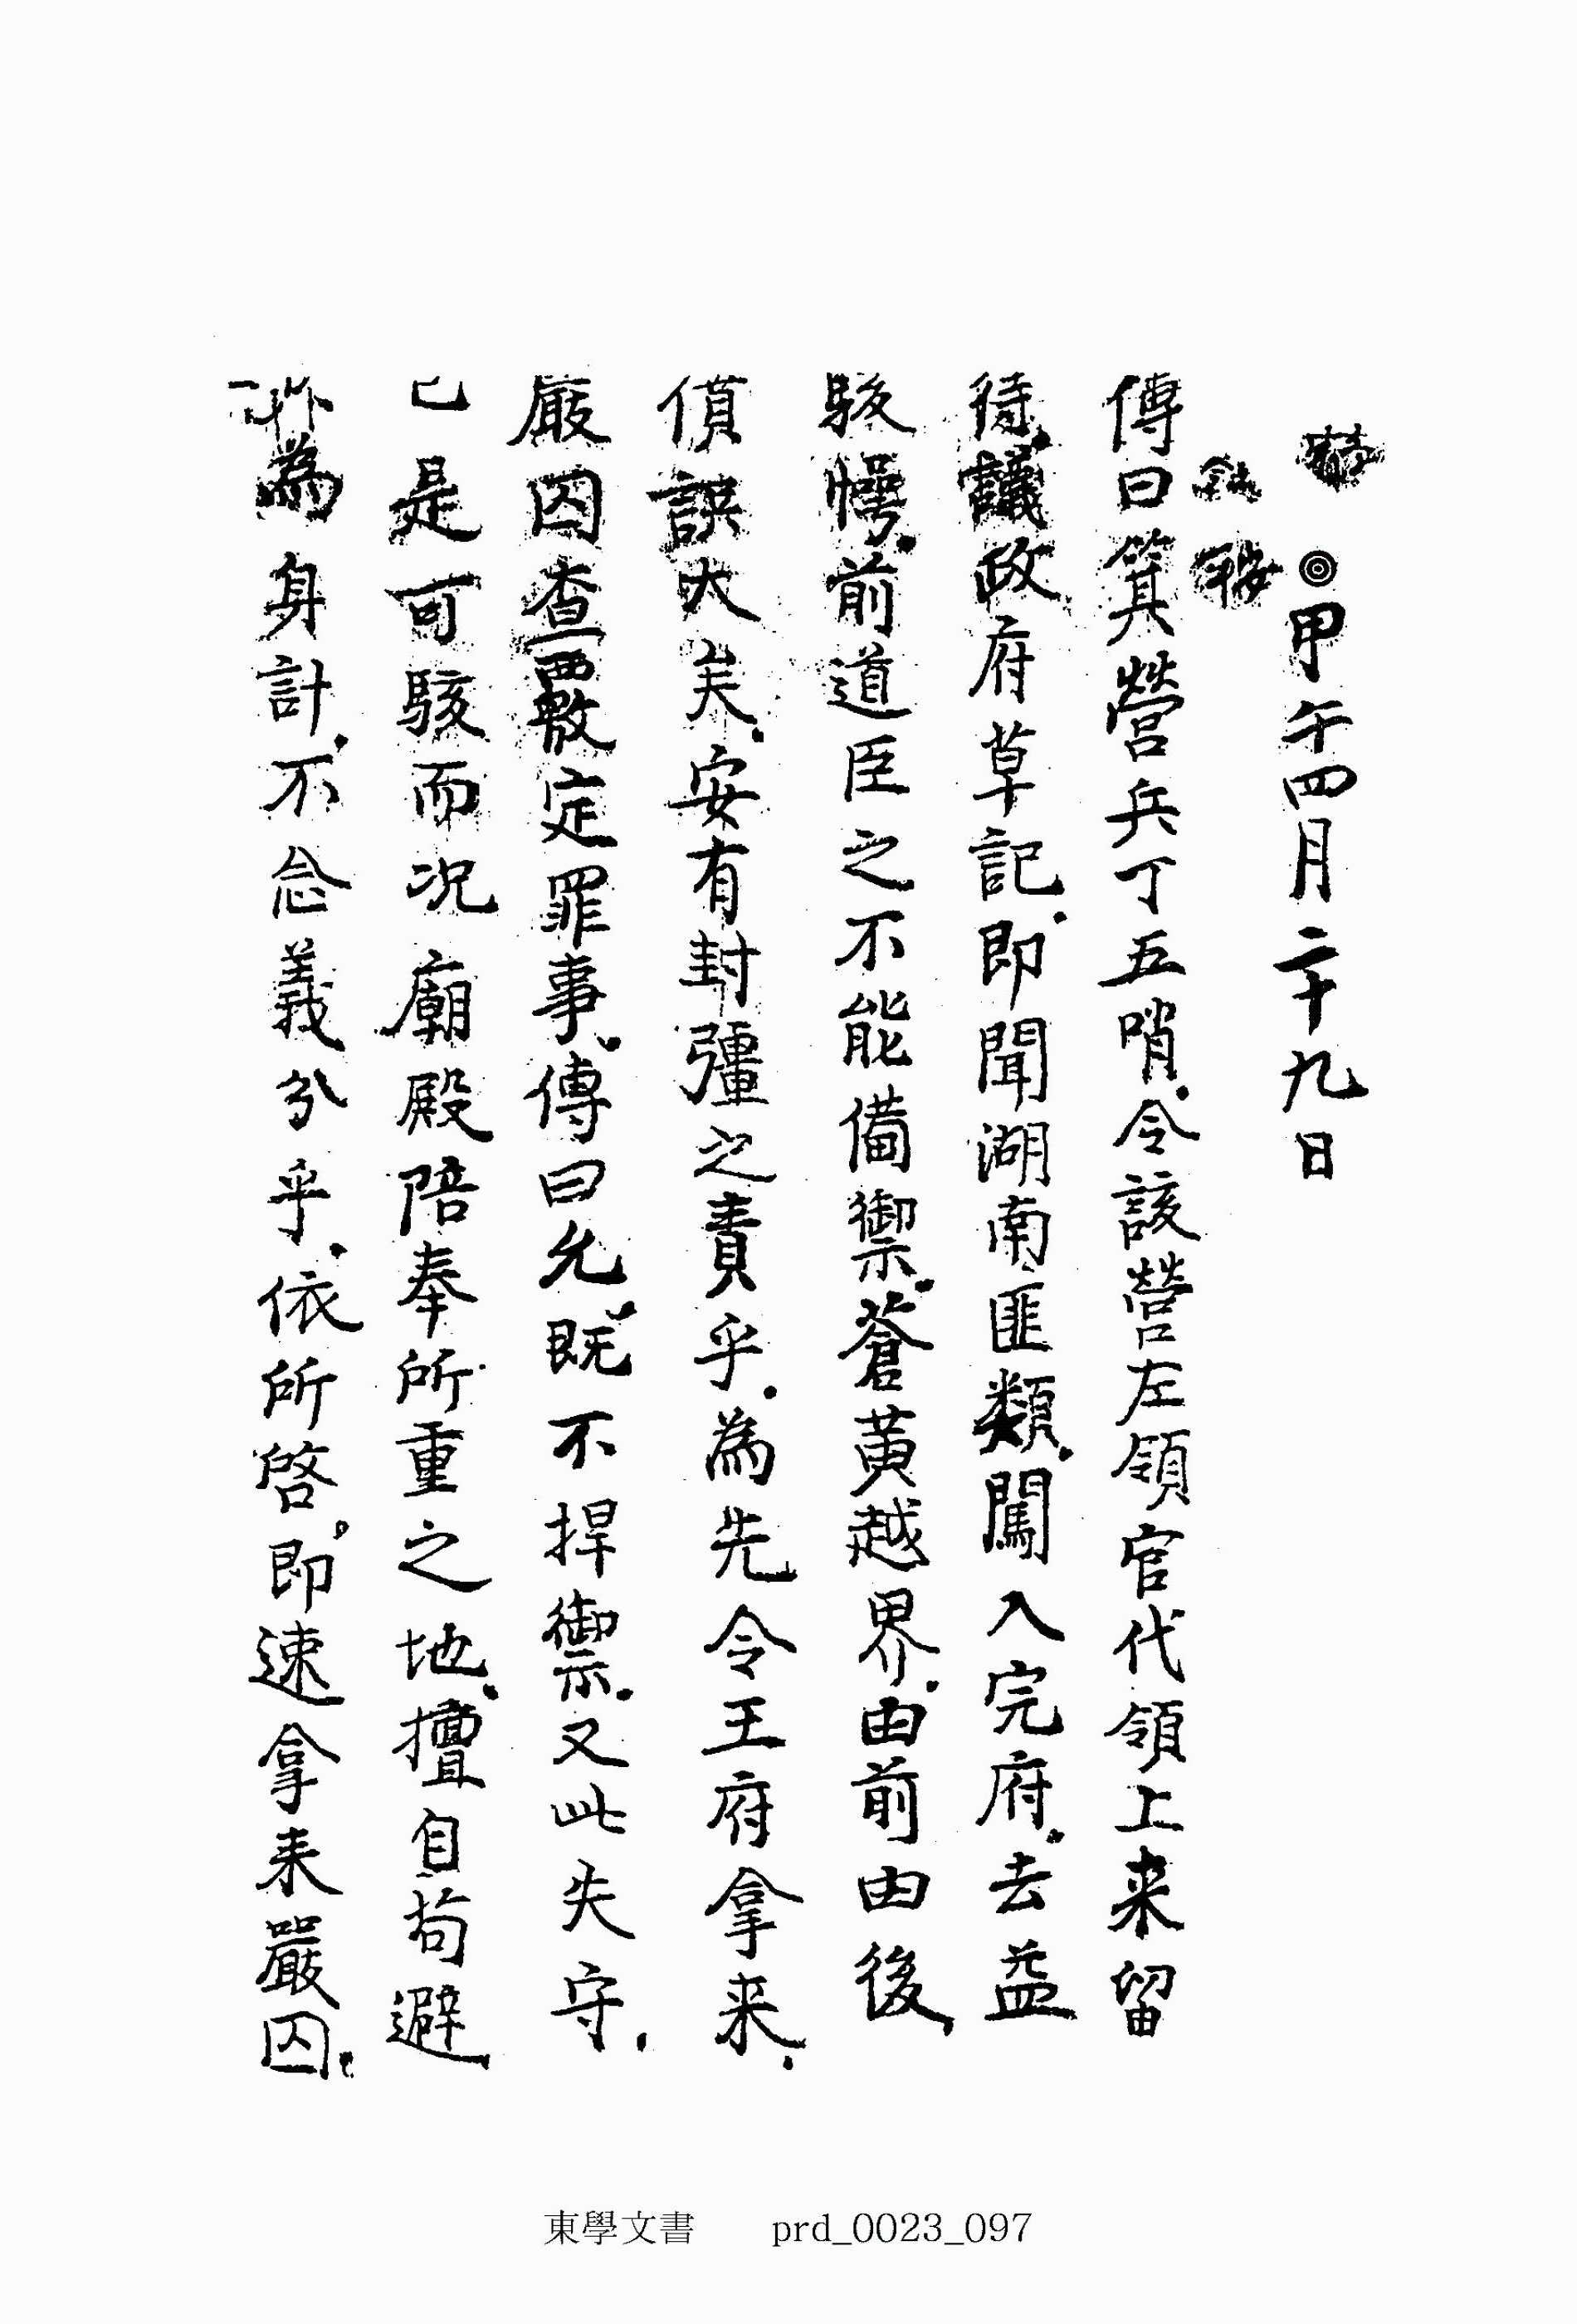 ◎甲午四月二十九日
傳曰箕營兵丁五哨令該營左領官代領上来留
待議政府草記即聞湖南匪類闖入完府去益
駭愕前道臣之不能備禦蒼黃越界由前由後
僨誤大矣安有封彊之責乎為先令王府拿来
嚴囚查覈定罪事傳曰允既不捍禦又此失守
已是可駭而况廟殿陪奉所重之地擅自苟避
為身計不念義分乎依所啓即速拿来嚴囚
東學文書 prd_0023_097